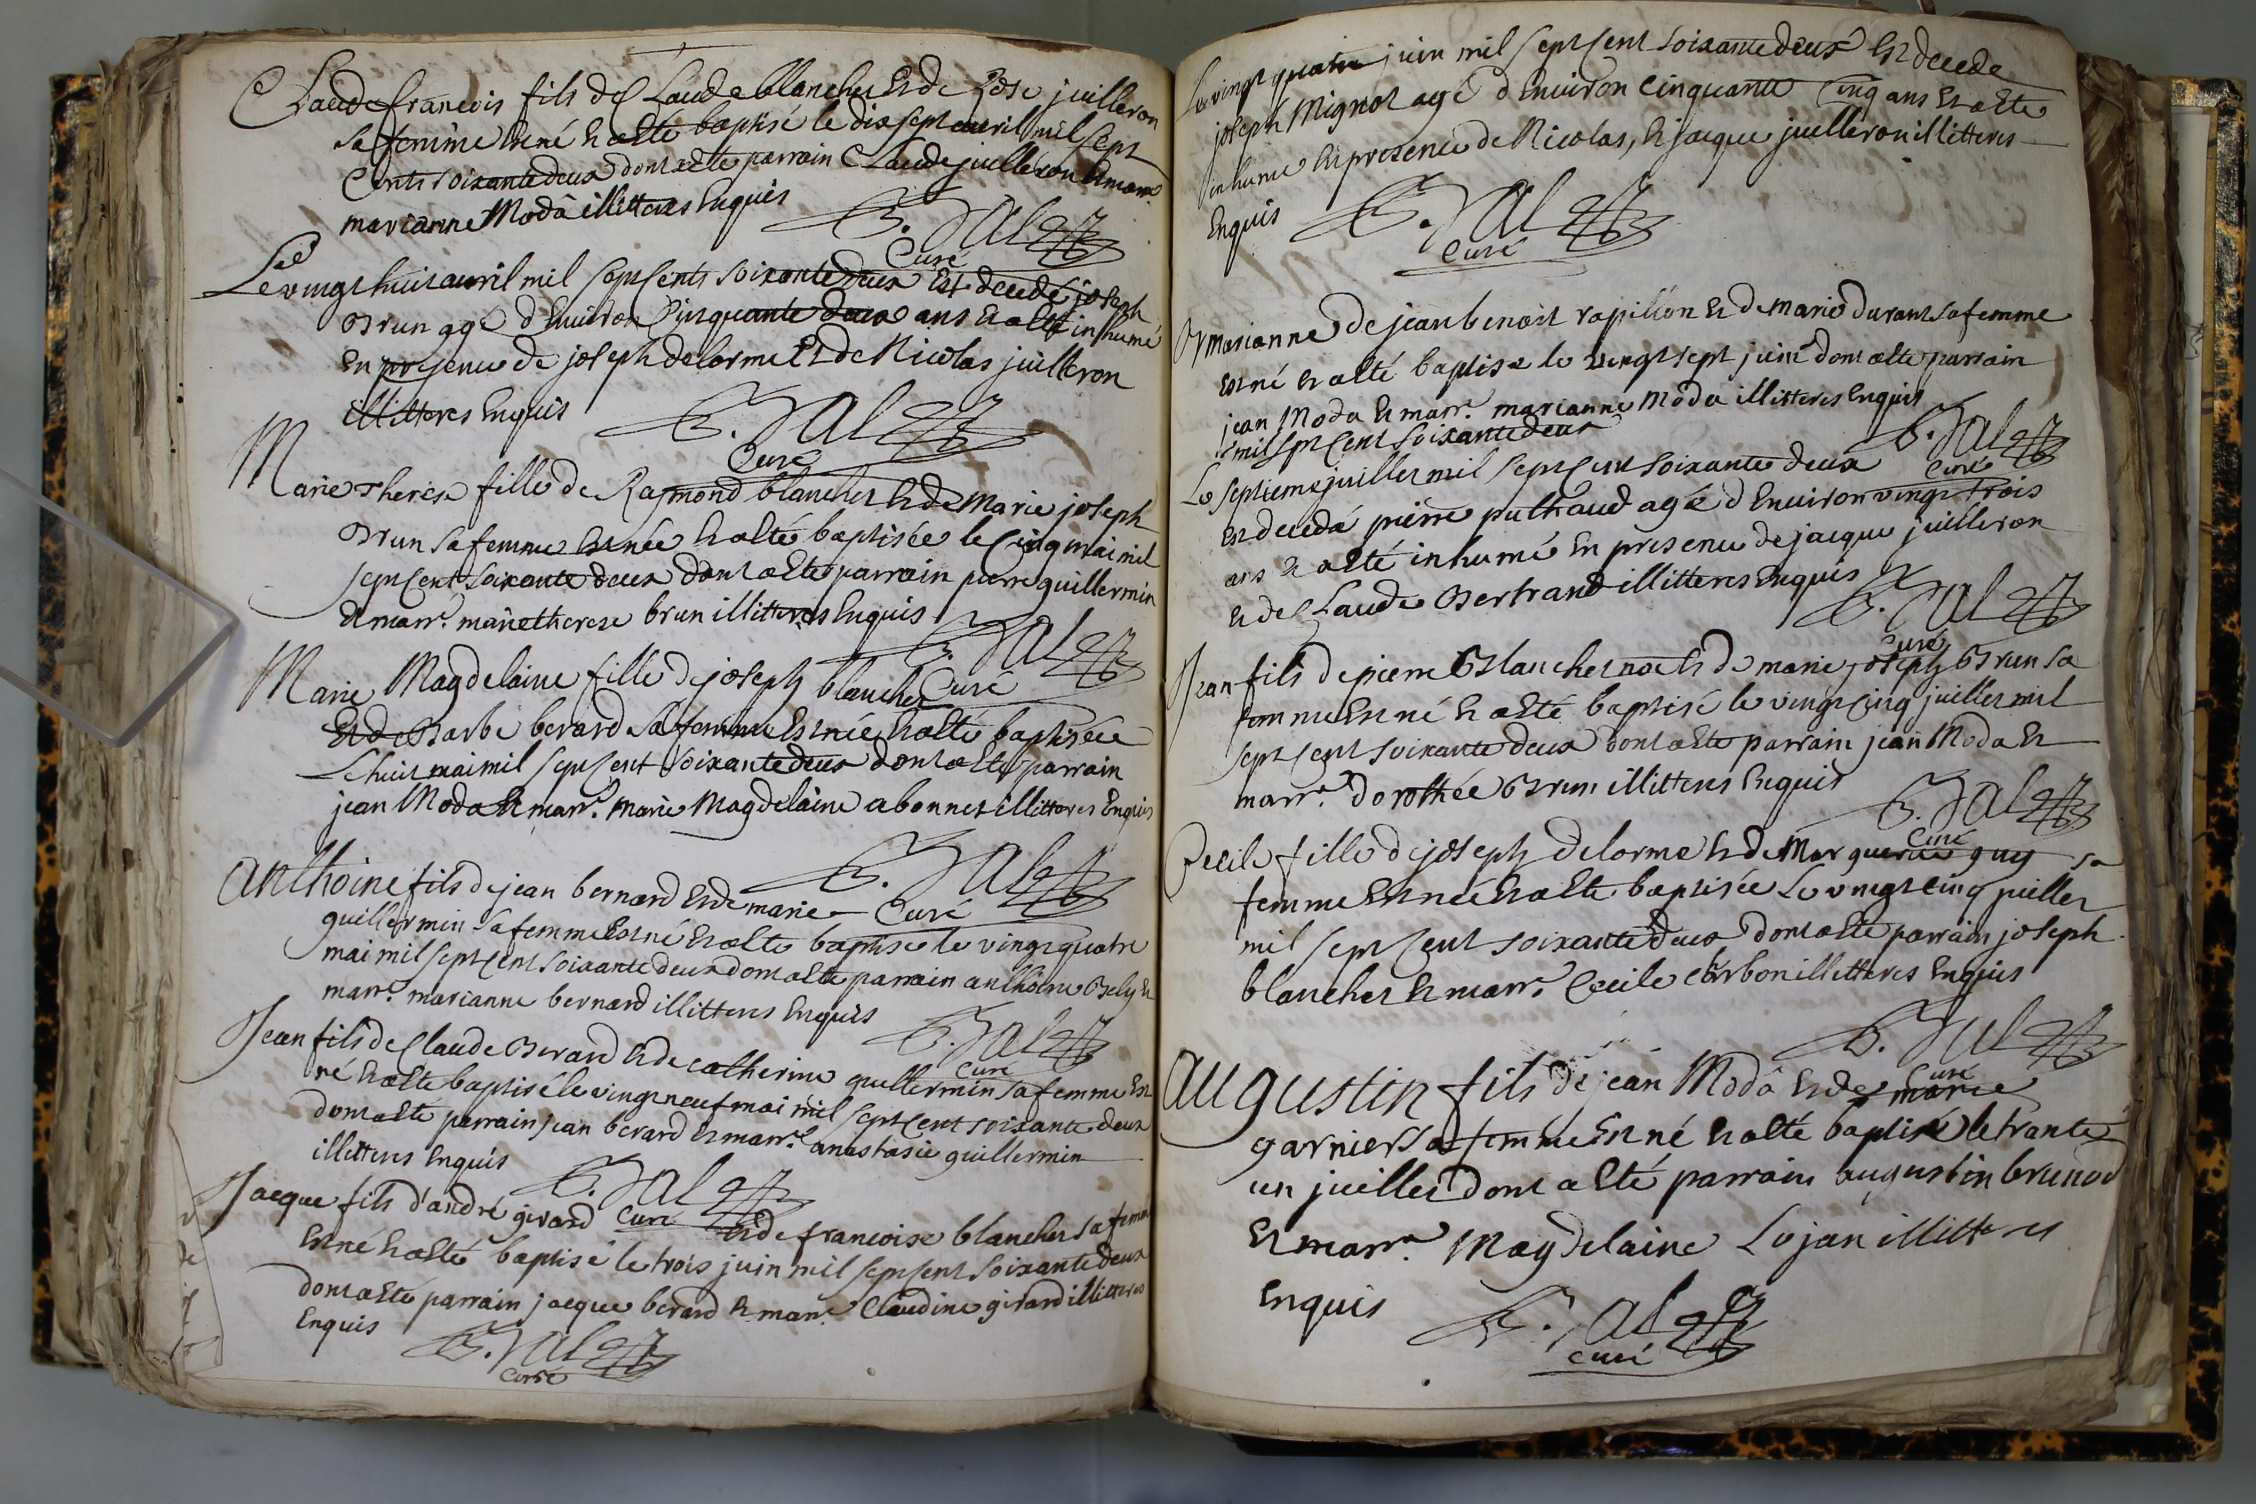 Claude francois fils de Claude blanchet et de Rose juilleron
sa femme est né et a esté baptisé le dix sept avril mil sept
Cents soixante deux dont a ete parrain Claude juilleron et marr.e
marianne Moda illitteres Enquis
B. Jalez
Curé
Le vingt huit avril mil sept Cents soixante deux Est decedé joseph
Brun agé d'Environ Cinquante deux ans et a esté inhumé
En presence de joseph delorme Et de Nicolas juilleron
illitteres Enquis
B. Jalez
Curé
Marie Therese fille de Raymond blanchet et de Marie joseph
Brun sa femme est née et a esté baptisée le Cinq mai mil
sept Cent soixante deux dont a esté parrain pierre guillermin
et marr.e marie therese brun illitteres Enquis
B. Jalez
Curé
Marie Magdelaine fille de joseph blanchet
Et de Barbe berard sa femme Est née et a esté baptisée
Le huit mai mil sept Cent soixante deux dont a esté parrain
jean Moda et marr.e Marie Magdelaine abonnet illitteres Enquis
B. Jalez
Curé
Anthoine fils de jean bernard et de marie
guillermin sa femme Est né et a esté baptisé le vingt quatre
mai mil sept Cent soixante deux dont a esté parrain anthoine Bely et
marr.e marianne bernard illitteres Enquis
B. Jalez
Curé
Jean fils de Claude Berard et de catherine guillermin sa femme Est
né et a esté baptisé le vingt neuf mai mil sept Cent soixante deux
dont a esté parrain jean berard et marr.e anastasie guillermin
illitteres Enquis
B. Jalez
Curé
Jacque fils d'andré girard et de francoise blanchet sa femme
Est né et a esté baptisé le trois juin mil sept Cent soixante deux
dont a esté parrain jacque berard et marr.e Claudine girard illitteres
Enquis
B. Jalez
Curé
Le vingt quatre juin mil sept Cent soixante deux Est decede
joseph Mignot agé d'Environ Cinquante Cinq ans et a esté
inhume En presence de Nicolas, et jacque juilleron illitteres
Enquis
B. Jalez
Curé
marianne de jean benoit rapillion et de marie durant sa femme
est né et a esté baptisé le vingt sept juin dont a esté parrain
jean Moda et marr.e marianne Moda illitteres Enquis
mil sept Cent soixante deux
B. Jalez
Curé
Le septieme juillet mil sept Cent soixante deux
est decedé pierre puthaud agé d'Environ vingt trois
ans et a esté inhumé En presence de jacque juilleron
et de Claude Bertrand illitteres Enquis
B. Jalez
Curé
Jean fils de pierre Blanchet et de marie joseph Brun sa
femme Est né et a esté baptisé le vingt Cinq juillet mil
sept Cent soixante deux dont a esté parrain jean Moda et
marr.e dorothée Brun illitteres Enquis
B. Jalez
Curé
Cecile fille de joseph delorme et de Marguerite guy sa
femme Est née et a esté baptisée Le vingt Cinq juillet
mil sept Cent soixante deux dont a esté parrain joseph
blanchet et marr.e Cecile Corbon illitteres Enquis
B. Jalez
Curé
Augustin fils de jean Moda et de marie
garnier sa femme Est né et a esté baptisé le trante
un juillet dont a esté parrain augustin brunod
et marr.e Magdelaine Lojan illitteres
Enquis
B. Jalez
Curé